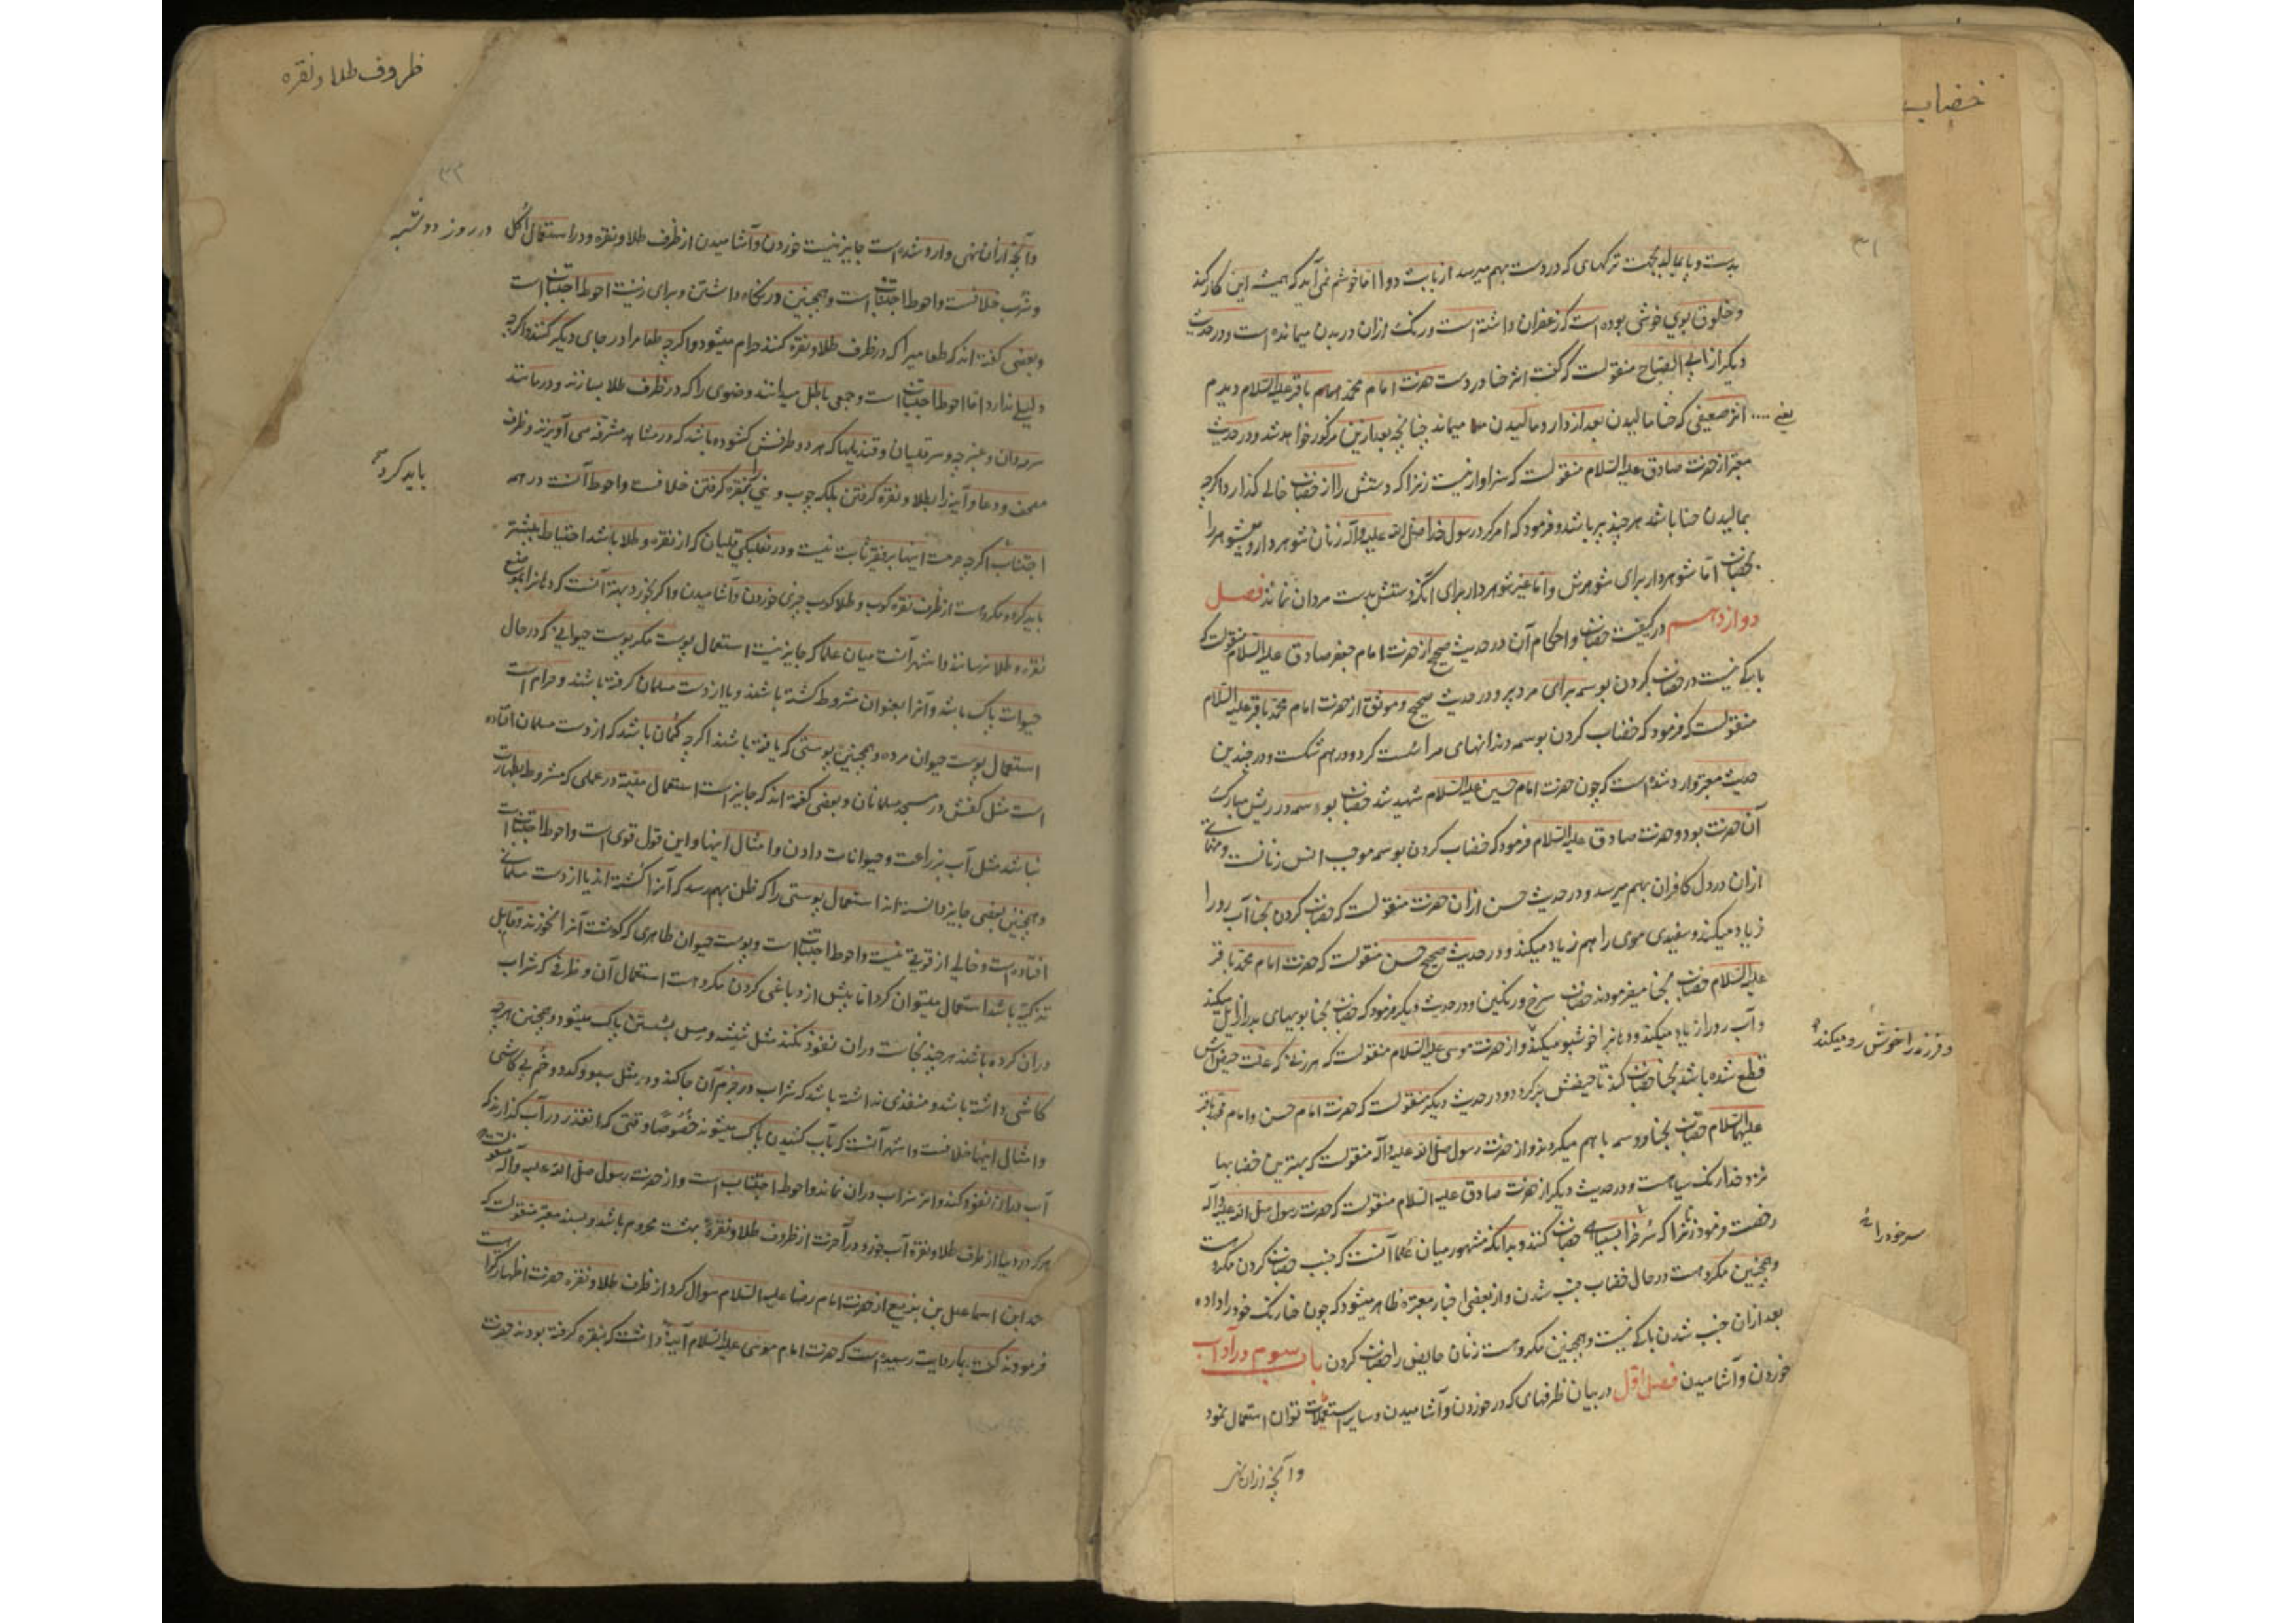 خضاب
۳۱
بدست و پا بمالید بجهت ترکهای که در دست بهم میرسد از بابت دوا اما خوشم نمی آید که همیشه این کار کنند
و خلوق بوی خوشی بوده است که زعفران داشته است و رنگ ازان در بدن میمانده است و در حدیث
دیگر از ابی الصباح منقولست که گفت اثر حنا در دست حضرت امام محمد باقر علیه السلام دیدم
یعنی اثر ضعیفی که حنا مالیدن بعد از دارو مالیدن میماند چنانچه بعد ازین مذکور خواهد شد و در حدیث
معتبر از حضرت صادق علیه السلام منقولست که سزاوار نیست زنرا که دستش را از خضاب خالی گذارد اگرچه
بمالیدن حنا باشد هرچند پیر باشد و فرمود که امر کرد رسول خدا صلی الله علیه وآله زنان شوهردار و بیشوهر را
بخضاب اما شوهردار برای شوهرش و اما غیر شوهردار برای آنکه دستش بدست مردان نماند فصل
دوازدهم در کیفیت خضاب و احکام آن در حدیث صحیح از حضرت امام جعفر صادق علیه السلام منقولست که
باکی نیست در خضاب کردن بوسمه برای مرد پیر و در حدیث صحیح و موثق از حضرت امام محمد باقر علیه السلام
منقولست که فرمود که خضاب کردن بوسمه دندانهای مرا سست کرد و درهم شکست و در چندین
حدیث معتبر وارد شده است که چون حضرت امام حسین علیه السلام شهید شد خضاب بوسمه در ریش مبارک
آن حضرت بود و حضرت صادق علیه السلام فرمود که خضاب کردن بوسمه موجب انس زنانست و مهابتی
ازان در دل کافران بهم میرسد و در حدیث حسن ازان حضرت منقولست که خضاب کردن بحنا آب رو را
زیاد میکند و سفیدی موی را هم زیاد میکند و در حدیث صحیح حسن منقولست که حضرت امام محمد باقر
علیه السلام خضاب بحنا میفرمودند خضاب سرخ و رنگین و در حدیث دیگر فرمود که خضاب بحنا بویهای بد را زایل میکند
و آب رو را زیاد میکند و دهانرا خوشبو میکند و از حضرت موسی علیه السلام منقولست که هر زنی که علت حیضش
و فرزند را خوش رو میکند
قطع شده باشد بحنا خضاب کند تا حیضش برگردد و در حدیث دیگر منقولست که حضرت امام حسن و امام محمد باقر
علیهما السلام خضاب بحنا و وسمه با هم میکردند و از حضرت رسول صلی الله علیه وآله منقولست که بهترین خضابها
نزد خدا رنگ سیاهست و در حدیث دیگر از حضرت صادق علیه السلام منقولست که حضرت رسول صلی الله علیه وآله
رخصت فرمود زنرا که سر خود را بسیاهی خضاب کنند و بدانکه مشهور میان علما آنست که جنب خضاب کردن مکروهست
سر خود را
و همچنین مکروهست در حال خضاب جنب شدن و از بعضی اخبار معتبره ظاهر میشود که چون حنا رنگ خود را داده
بعد ازان جنب شدن باکی نیست و همچنین مکروهست زنان حایض را خضاب کردن باب سوم در آداب
خوردن و آشامیدن فصل اول در بیان ظرفهای که در خوردن و آشامیدن و سایر استعمالات توان استعمال نمود
وآنچه ازان نهی
ظروف طلا و نقره
۳۲
وآنچه ازان نهی وارد شده است جایز نیست خوردن و آشامیدن از ظرف طلا و نقره و در استعمال اکل
در روز دوشنبه
و شرب خلافست و احوط اجتنابست و همچنین در نگاه داشتن و برای زینت احوط اجتنابست
و بعضی گفته اند که طعامیرا که در ظرف طلا و نقره کنند حرام میشود و اگرچه طعام را در جای دیگر کنند و اگرچه
دلیلی ندارد اما احوط اجتنابست و جمعی باطل میدانند وضوی را که در ظرف طلا بسازند و در مانند
سرمه دان و عنبرچه و سر قلیان و قندیلها که هر دو طرفش کشوده باشد که در مشاهد مشرفه می آویزند و ظرف
مصحف و دعا و آینه را بطلا و نقره گرفتن بلکه چوب و نی را بنقره گرفتن خلافست و احوط آنست در همه
باید کرد
اجتناب اگرچه حرمت اینها بر فقیر ثابت نیست و در نعلبکی قلیان که از نقره و طلا باشد احتیاط بیشتر
باید کرد و مکروهست از ظرف نقره کوب و طلا کوب چیزی خوردن و آشامیدن و اگر بخورد بهتر آنست که دهانرا بموضع
نقره و طلا نرساند و اشهر آنست میان علما که جایز نیست استعمال پوست مگر پوست حیوانی که در حال
حیوات پاک باشد و آنرا بعنوان مشروط کشته باشند و یا از دست مسلمان گرفته باشند و حرام است
استعمال پوست حیوان مرده و همچنین پوستی که یافته باشند اگرچه گمان باشد که از دست مسلمان افتاده
است مثل کفش در مسجد مسلمانان و بعضی گفته اند که جایز است استعمال میته در عملی که مشروط بطهارت
نباشد مثل آب بزراعت و حیوانات دادن و امثال اینها و این قول قوی است و احوط اجتنابست
و همچنین بعضی جایز دانسته اند استعمال پوستی را که ظن بهم رسد که آنرا کشته اند یا از دست مسلمانی
افتاده است و خالی از قوتی نیست و احوط اجتنابست و پوست حیوان طاهری که گوشت آنرا نخورند و قابل
تذکیه باشد استعمال میتوان کرد اما پیش از دباغی کردن مکروهست استعمال آن و ظرفی که شراب
دران کرده باشند هرچند نجاست دران نفوذ نکند مثل شیشه و مس بشستن پاک میشود و همچنین هرچه
کاشی داشته باشد و منفذی نداشته باشد که شراب در جرم آن جا کند و در مثل سبو و کدو و خم بی کاشی
و امثال اینها خلافست و اشهر آنست که بآب کشیدن پاک میشوند خصوصا وقتی که انقدر در آب گذارند که
آب دران نفوذ کند و اثر شراب دران نماند و احوط اجتنابست و از حضرت رسول صلی الله علیه وآله منقولست
هر که در دنیا از ظرف طلا و نقره آب خورد در آخرت از ظروف طلا و نقره بهشت محروم باشد و بسند معتبر منقولست که
محمد ابن اسماعیل بن بزیع از حضرت امام رضا علیه السلام سوال کرد از ظرف طلا و نقره حضرت اظهار کراهت
فرمودند گفت بما روایت رسیده است که حضرت امام موسی علیه السلام آینه داشت که بنقره گرفته بودند حضرت